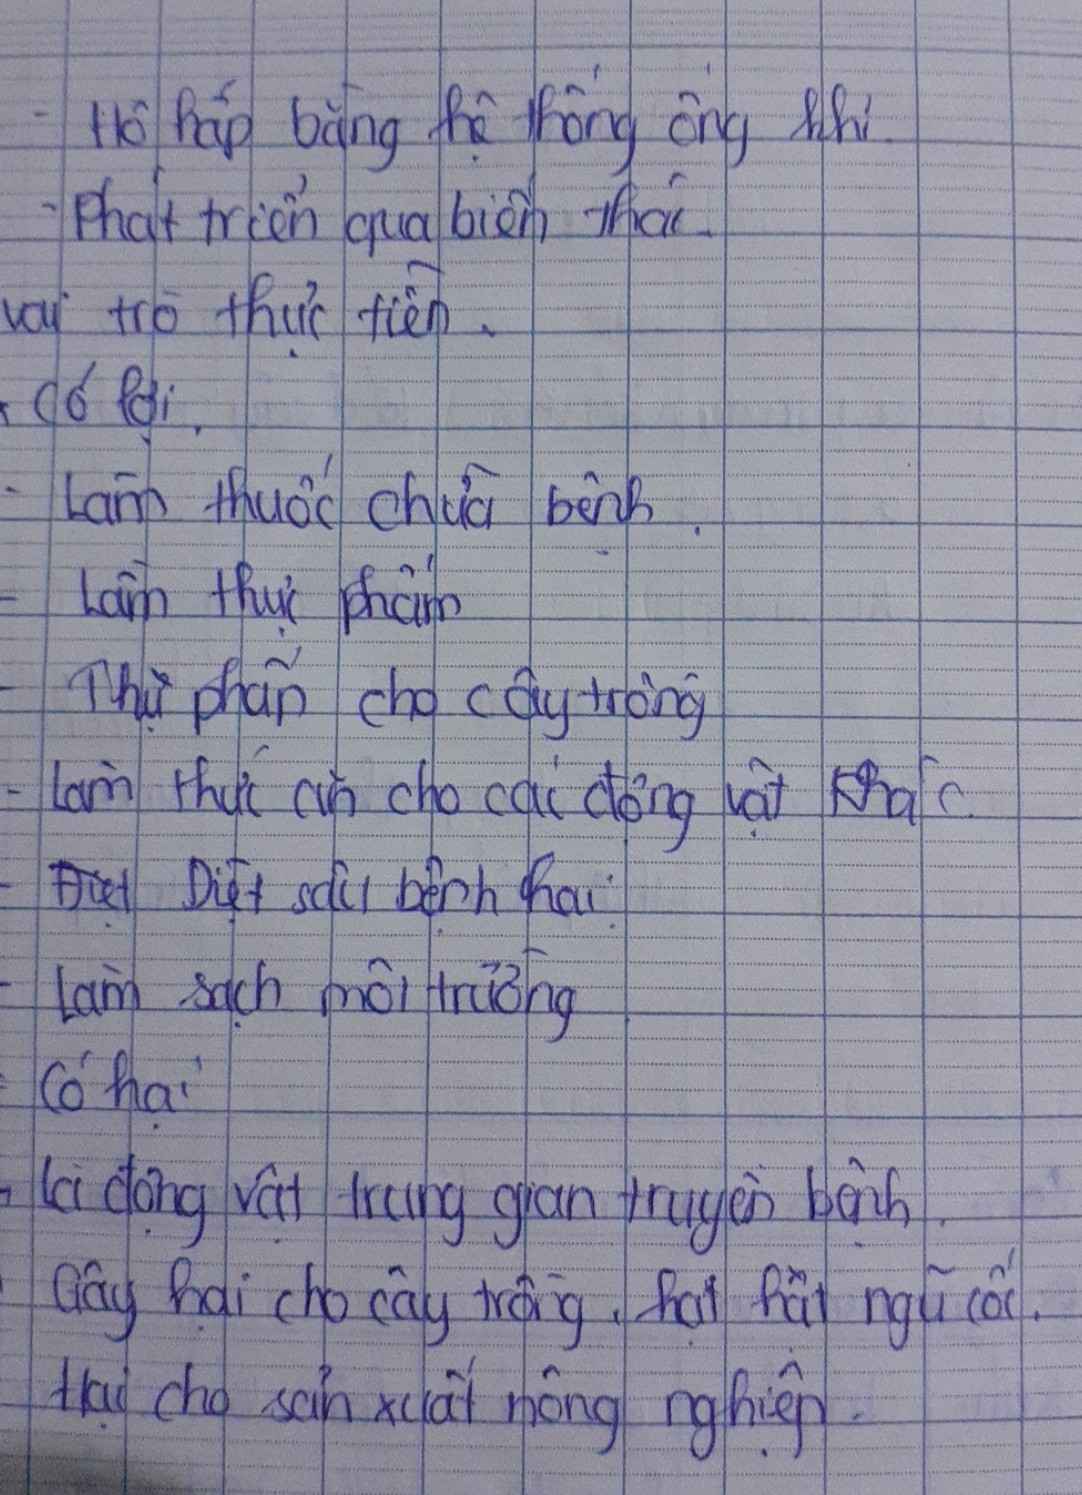 - Hô hấp bằng hệ thống ống khí
- Phát triển qua biến thái.
vai trò thực tiễn.
có lợi.
- Làm thuốc chữa bệnh.
- Làm thực phẩm
- Thụ phấn cho cây trồng
- Làm thức ăn cho các động vật khác.
- Diệt sâu bệnh hại.
- Làm sạch môi trường
Có hại
- Là động vật trung gian truyền bệnh.
Gây hại cho cây trồng, hạt ngũ cốc.
Hại cho sản xuất nông nghiệp.